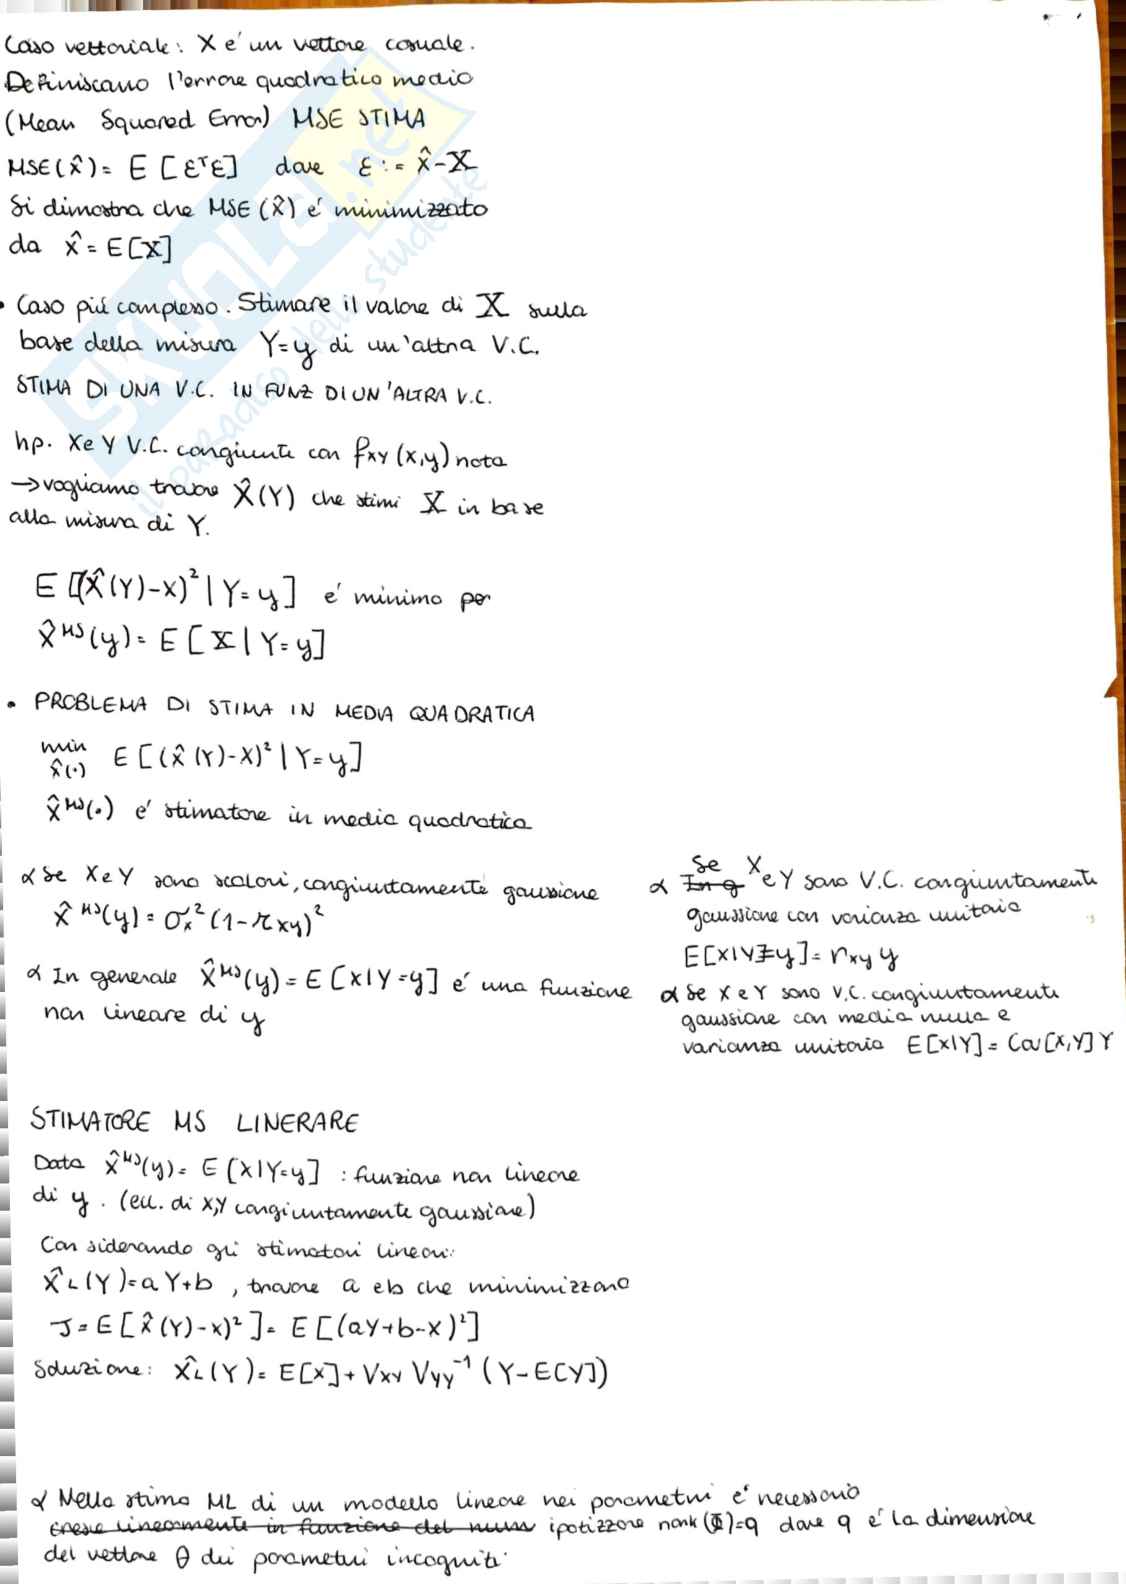 Caso vettoriale: X e' un vettore casuale.
Definiscano l'errore quadratico medio
(Mean Squared Error) MSE STIMA
MSE(x̂)= E [εᵀε] dove ε := x̂-X
Si dimostra che MSE (x̂) e' minimizzato
da x̂ = E[X]
• Caso più complesso. Stimare il valore di X sulla
base della misura Y=y di un'altra V.C.
STIMA DI UNA V.C. IN FUNZ DI UN'ALTRA V.C.
hp. X e Y V.C. congiunte con fxy (x,y) nota
→ vogliamo trovare X̂(Y) che stimi X in base
alla misura di Y.
E [(X̂(Y)-X)² | Y=y] e' minimo per
X̂ᴹˢ(y)= E [X | Y=y]
• PROBLEMA DI STIMA IN MEDIA QUADRATICA
min E [(X̂(Y)-X)² | Y=y]
x̂(·)
X̂ᴹˢ(·) e' stimatore in media quadratica
α Se X e Y sono scalari, congiuntamente gaussiane
X̂ᴹˢ(y)= σx²(1-rxy)²
α In generale X̂ᴹˢ(y)= E [X|Y=y] e' una funzione
non lineare di y
α Se X e Y sono V.C. congiuntamente
gaussiane con varianza unitaria
E[X|Y=y]= rxy y
α Se X e Y sono V.C. congiuntamente
gaussiane con media nulla e
varianza unitaria E[X|Y]= Cov[X,Y] Y
STIMATORE MS LINERARE
Data X̂ᴹˢ(y)= E [X|Y=y] : funzione non lineare
di y. (ecc. di X,Y congiuntamente gaussiane)
Considerando gli stimatori lineari:
X̂L(Y)=aY+b, trovare a e b che minimizzano
J= E [X̂(Y)-X)²]= E [(aY+b-X)²]
Soluzione: X̂L(Y)= E[X]+ Vxy Vyy⁻¹ (Y-E[Y])
α Nella stima ML di un modello lineare nei parametri e' necessario
cresce linearmente in funzione del num ipotizzare rank(Φ)=q dove q e' la dimensione
del vettore θ dei parametri incogniti.
SKUOLA.net
il paradiso dello studente